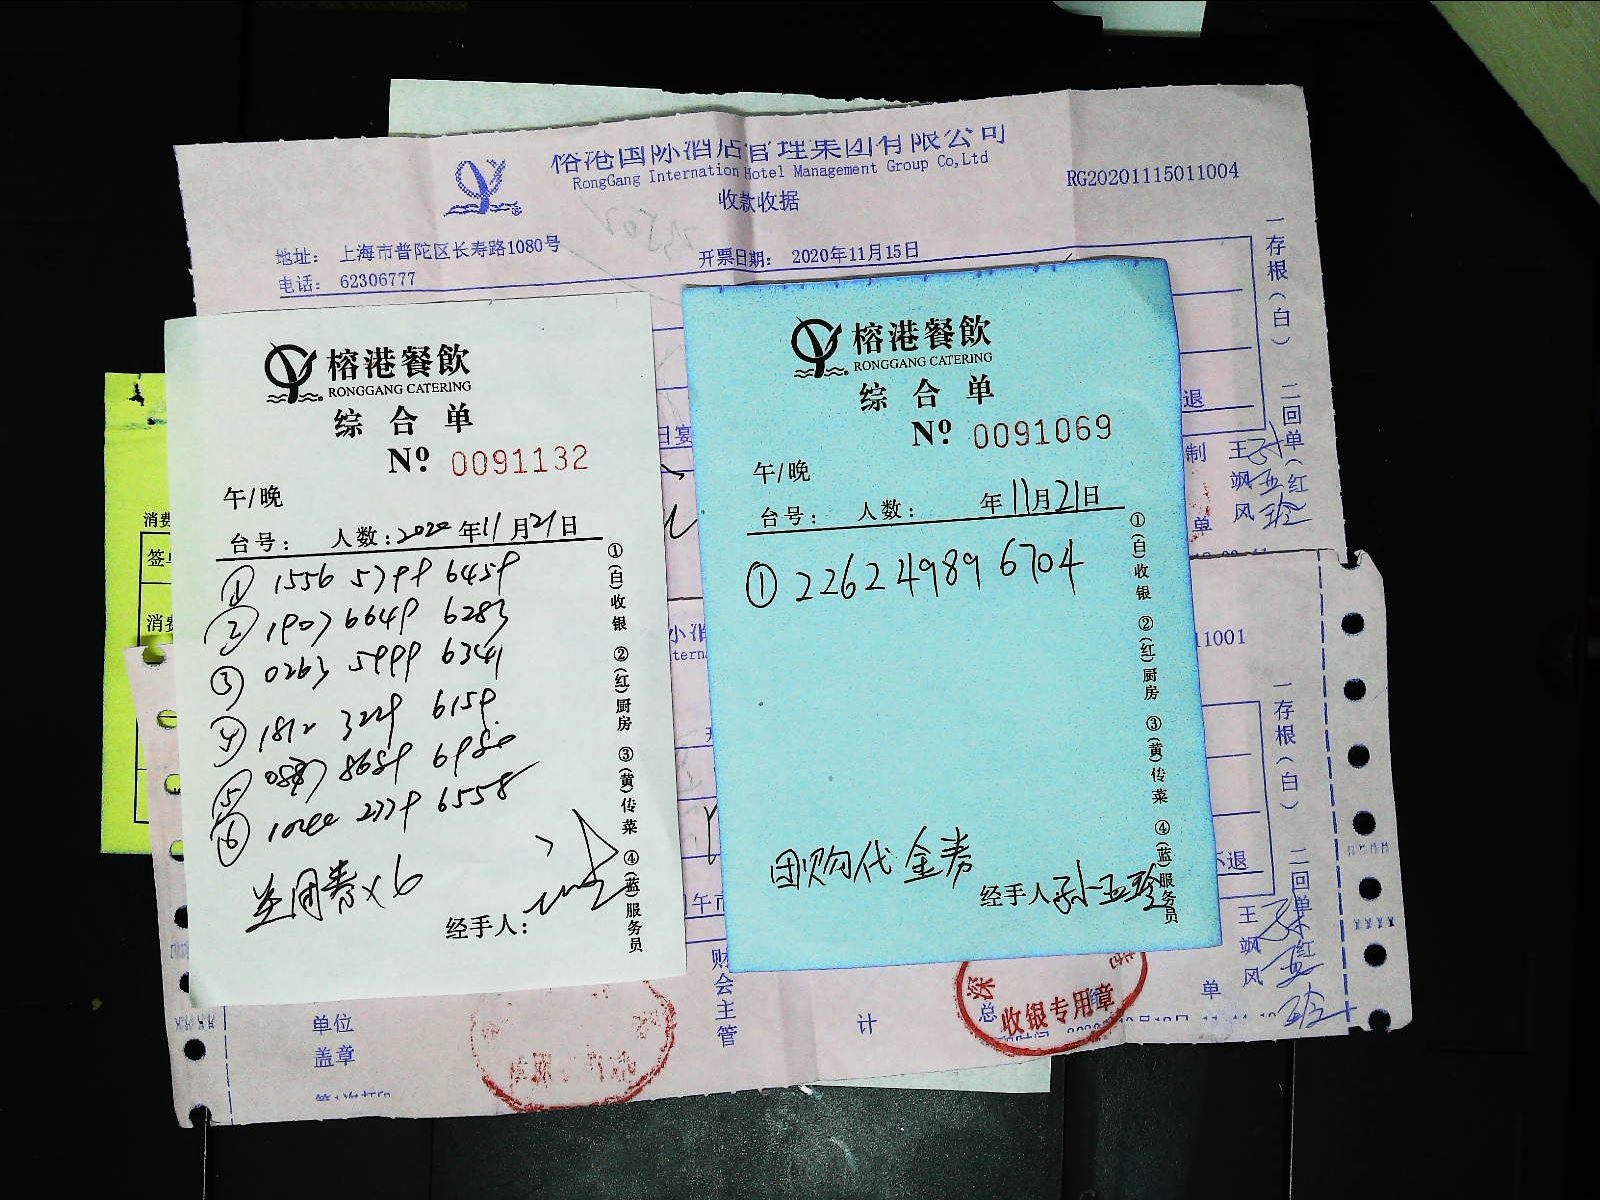 榕港国际酒店管理集团有限公司
RongGang Internation Hotel Management Group Co,Ltd
收款收据
RG20201115011004
地址： 上海市普陀区长寿路1080号
电话： 62306777
开票日期： 2020年11月15日
一存根（白） 二回单（红
退
制
王飒风
单
孙亚玲
榕港餐飲
RONGGANG CATERING
综合单
Nº 0091132
午/晚
台号： 人数：2020年11月21日
① 1556 5799 6459
② 1907 6649 6283
③ 0263 5999 6341
④ 1812 3229 6159
⑥ 6558
券×6
经手人：
①(白)收银 ②(红)厨房 ③(黄)传菜 ④(蓝)服务员
榕港餐飲
RONGGANG CATERING
综合单
Nº 0091069
午/晚
台号： 人数： 年11月21日
① 2262 4989 6704
团购代金券
经手人孙亚玲
①(白)收银 ②(红)厨房 ③(黄)传菜 ④(蓝)服务员
消费
签单
消费
11001
一存根（白） 二回单（红
不退
王飒风
单
孙亚玲
单位
盖章
财会主管
计
总
收银专用章